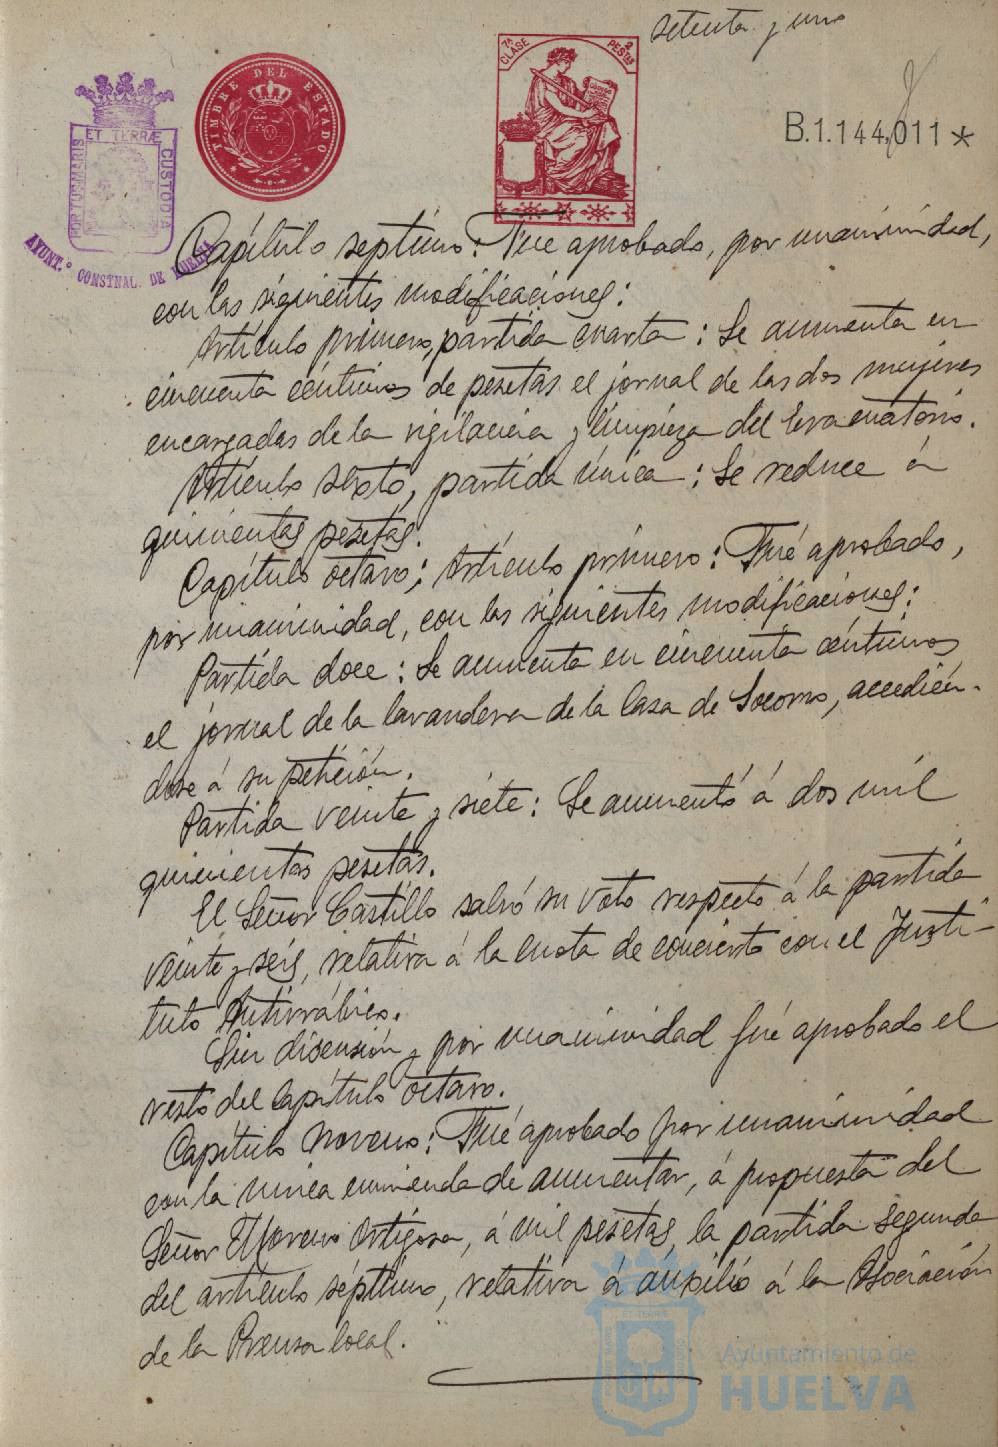 setenta y uno
7ª CLASE
2 PESTAS
TIMBRE DEL ESTADO
ET TERRÆ
PORTUS MARIS
CUSTODIA
AYUNT.º CONSTNAL. DE HUELVA
B.1.144,011 *
Capítulo septimo: Fue aprobado, por unanimidad,
con las siguientes modificaciones:
Artículo primero, partida cuarta: Se aumenta en
cincuenta céntimos de pesetas el jornal de las dos mujeres
encargadas de la vigilancia y limpieza del Evacuatorio.
Artículo sexto, partida única: Se reduce á
quinientas pesetas.
Capítulo octavo; Artículo primero: Fué aprobado,
por unanimidad, con las siguientes modificaciones:
Partida doce: Se aumenta en cincuenta céntimos
el jornal de la lavandera de la Casa de Socorro, accedién-
dose á su petición.
Partida veinte y siete: Se aumentó á dos mil
quinientas pesetas.
El Señor Castillo salvó su voto respecto á la partida
veinte y seis, relativa á la cuota de concierto con el Insti-
tuto Antirrábico.
Sin discusión y por unanimidad fué aprobado el
resto del capítulo octavo.
Capítulo noveno: Fué aprobado por unanimidad
con la única enmienda de aumentar, á propuesta del
Señor Moreno Ortigosa, á mil pesetas, la partida segunda
del artículo séptimo, relativa á auxilio á la Asociación
de la Prensa local.
Ayuntamiento de
HUELVA